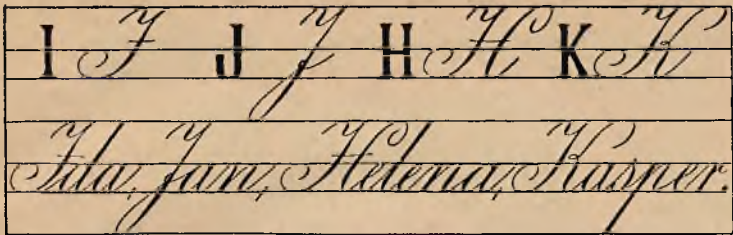 I I J J H H K K
Ida, Jan, Helena, Kasper.